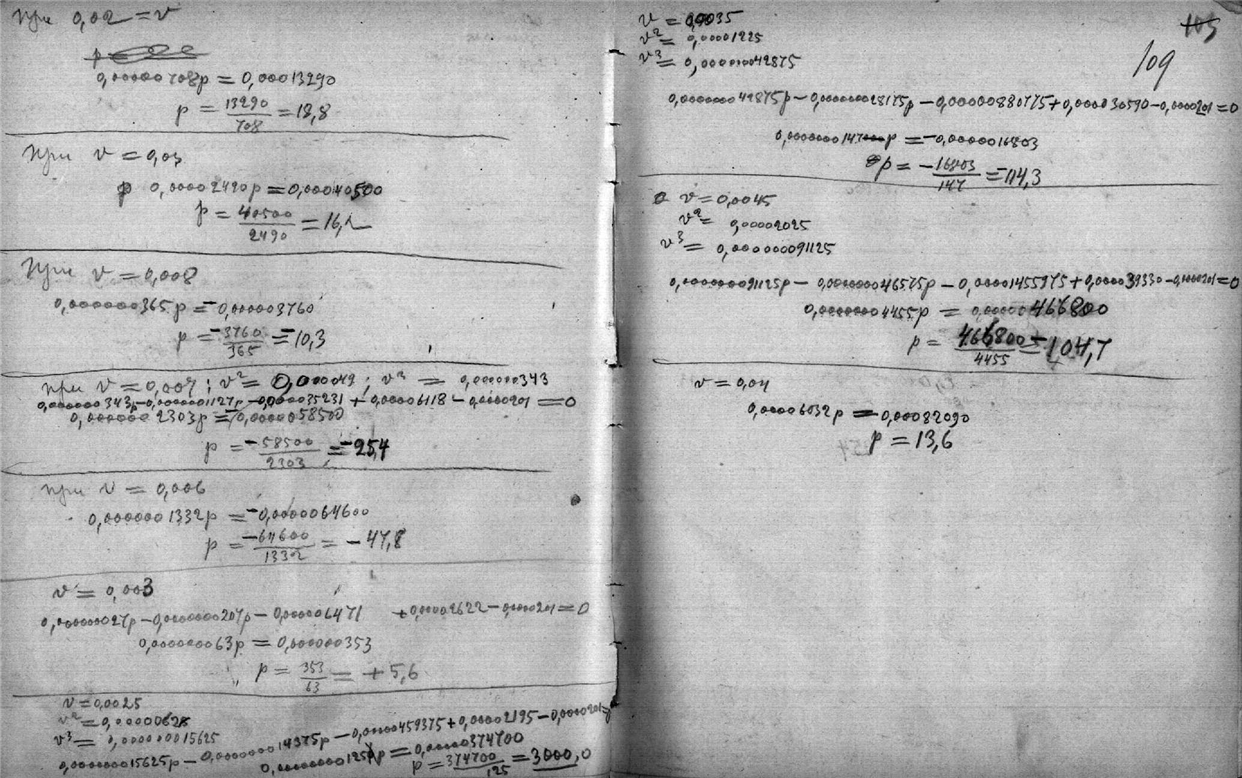 при 0,02 = v
0,00000708p = 0,00013290
p = 13290/708 = 18,8
при v = 0,03
p 0,00002490p = 0,00040500
p = 40500/2490 = 16,2
при v = 0,008
0,000000365p = -0,00003760
p = -3760/365 = -10,3
при v = 0,007; v² = 0,000049; v³ = 0,000000343
0,000000343p - 0,0000001127p - 0,000035231 + 0,00006118 - 0,0000201 = 0
p = -58500/2303 = -25,4
при v = 0,006
0,0000001332p = -0,0000064600
p = -64600/1332 = -47,8
v = 0,003
0,000000027p - 0,0000000207p - 0,000006471 + 0,00002622 - 0,0000201 = 0
0,0000000063p = 0,000000353
p = 353/63 = +5,6
v = 0,0025
v² = 0,00000625
v³ = 0,000000015625
0,000000015625p - 0,000000014375p - 0,00000459375 + 0,00002195 - 0,0000201 =
p = 374700/125 = 3000,0
105
109
v = 0,0035
v² = 0,00001225
v³ = 0,000000042875
0,000000042875p - 0,000000028175p - 0,00000880775 + 0,000030590 - 0,0000201 = 0
p = -16803/147 = -114,3
v = 0,0045
v² = 0,00002025
v³ = 0,000000091125
0,000000091125p - 0,000000046575p - 0,00001455975 + 0,000039330 - 0,0000201 = 0
p = 466800/4455 = 104,7
v = 0,04
0,00006032p = 0,00082090
p = 13,6